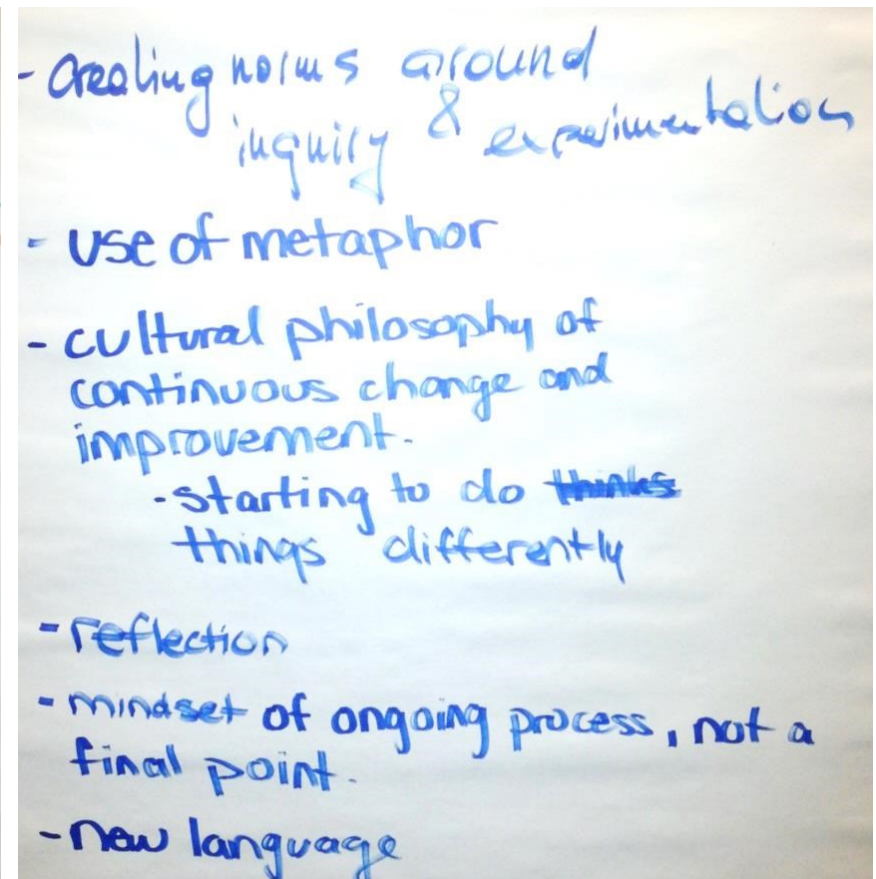 - creating norms around
inquiry & experimentation
- use of metaphor
- cultural philosophy of
continuous change and
improvement.
- starting to do thinks
things differently
- reflection
- mindset of ongoing process, not a
final point.
- new language